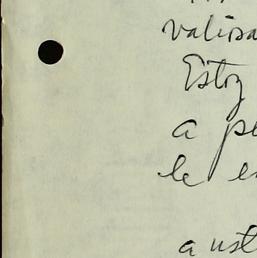 valiosa
Estoy
a pe
le es
a ust